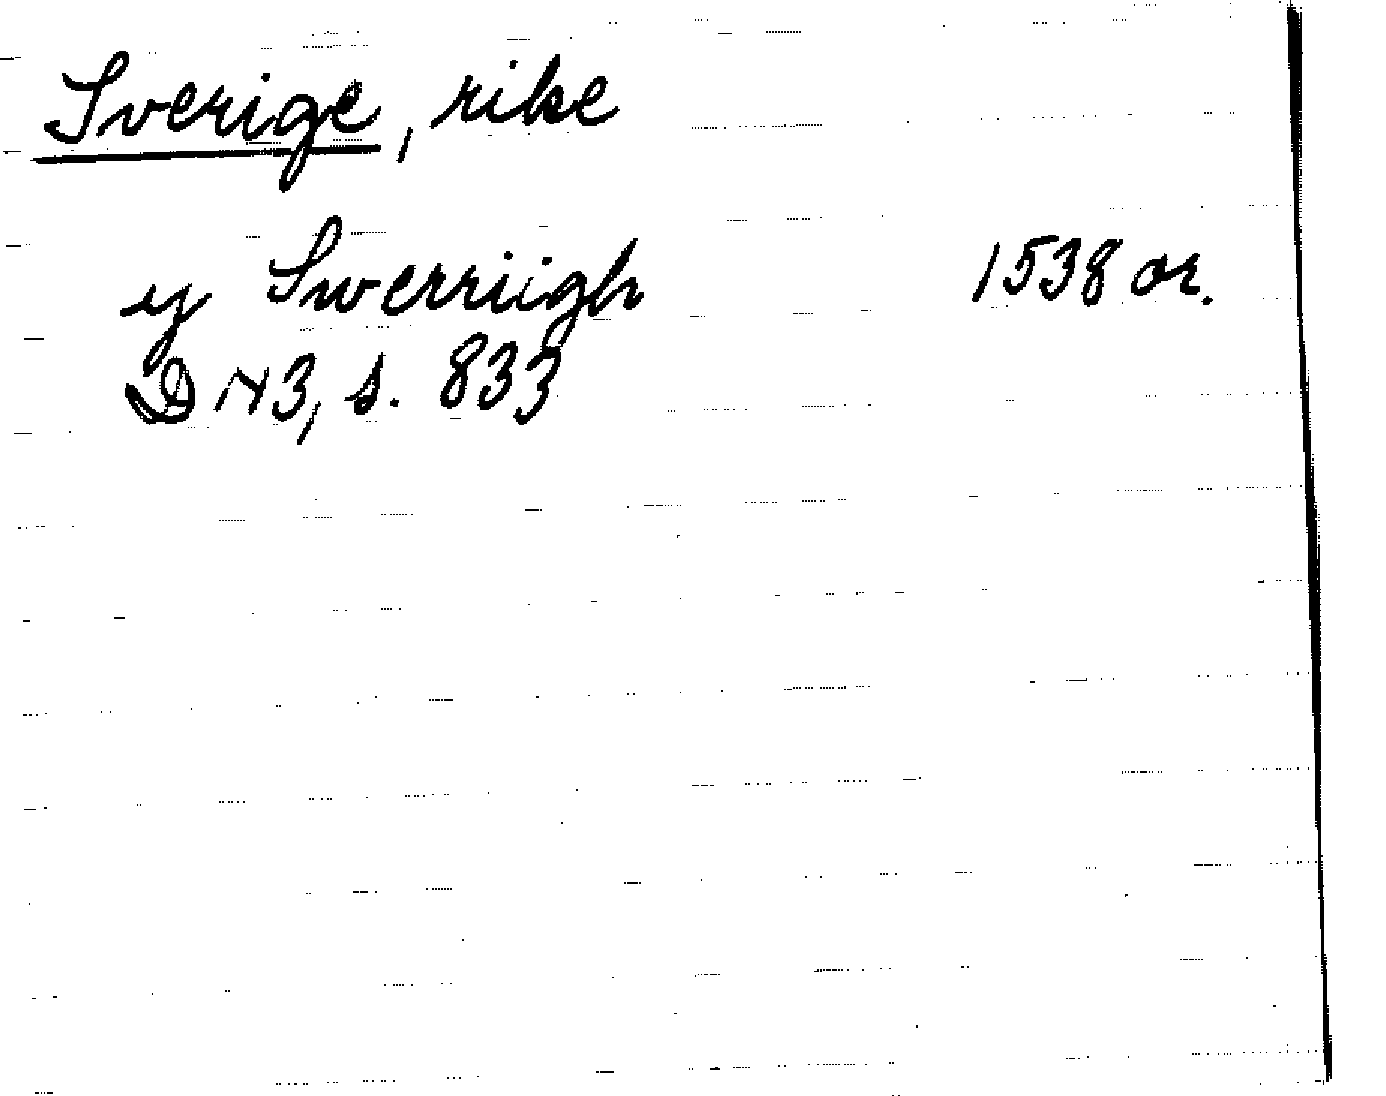 Sverige, rike
y Swerriigh 1538 or.
DN3, s. 833